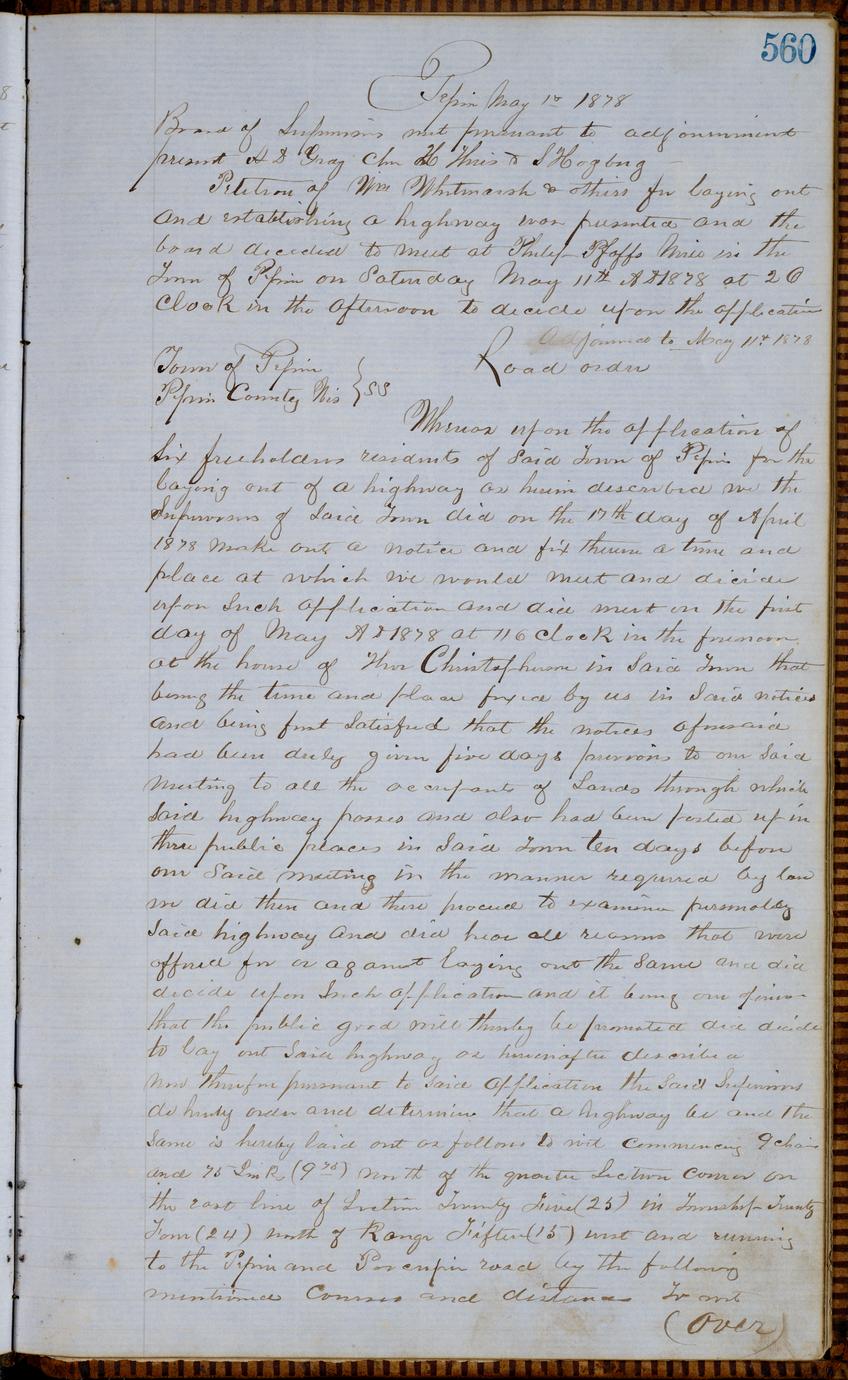 560
Pepin May 1st 1878
Board of Supervisors met pursuant to adjournment
present A D Gray Chn H & S Hogberg
Petition of Wm Whitmarsh & others for laying out
and establishing a highway was presented and the
board decided to meet at Philip Pfaffs Mill in the
Town of Pepin on Saturday May 11th AD 1878 at 2 O
Clock in the afternoon to decide upon the application
adjourned to May 11th 1878
Town of Pepin
Pepin County Wis } SS
Road order
Whereas upon the application of
Six freeholders residents of Said Town of Pepin for the
laying out of a highway as herin described we the
Supervisors of Said Town did on the 17th day of April
1878 make out a notice and fix therin a time and
place at which we would meet and decide
upon Such application and did meet on the first
day of May AD 1878 at 11 O Clock in the forenoon
at the house of Thor Christopherson in Said Town that
being the time and place fixed by us in Said notices
and being first Satisfied that the notices aforesaid
had been duly given five days previous to our Said
meeting to all the occupants of Lands through which
Said highway passes and also had been posted up in
three public places in Said Town ten days before
our Said meeting in the manner required by law
we did then and there proceed to examine personally
Said highway and did hear all reasons that were
offered for or against laying out the Same and did
decide upon Such application and it being our opinion
that the public good will thereby be promoted did decide
to lay out Said highway as hereinafter described
now therefore pursuant to Said application the Said Supervisors
do hereby order and determine that a highway be and the
Same is hereby laid out as follows to wit commencing 9 chains
and 75 Links (9 75) north of the quarter Section corner on
the east line of Section Twenty Five (25) in Township Twenty
Four (24) north of Range Fifteen (15) west and running
to the Pepin and Porcupine road by the following
mentioned Courses and distances To wit
(Over)